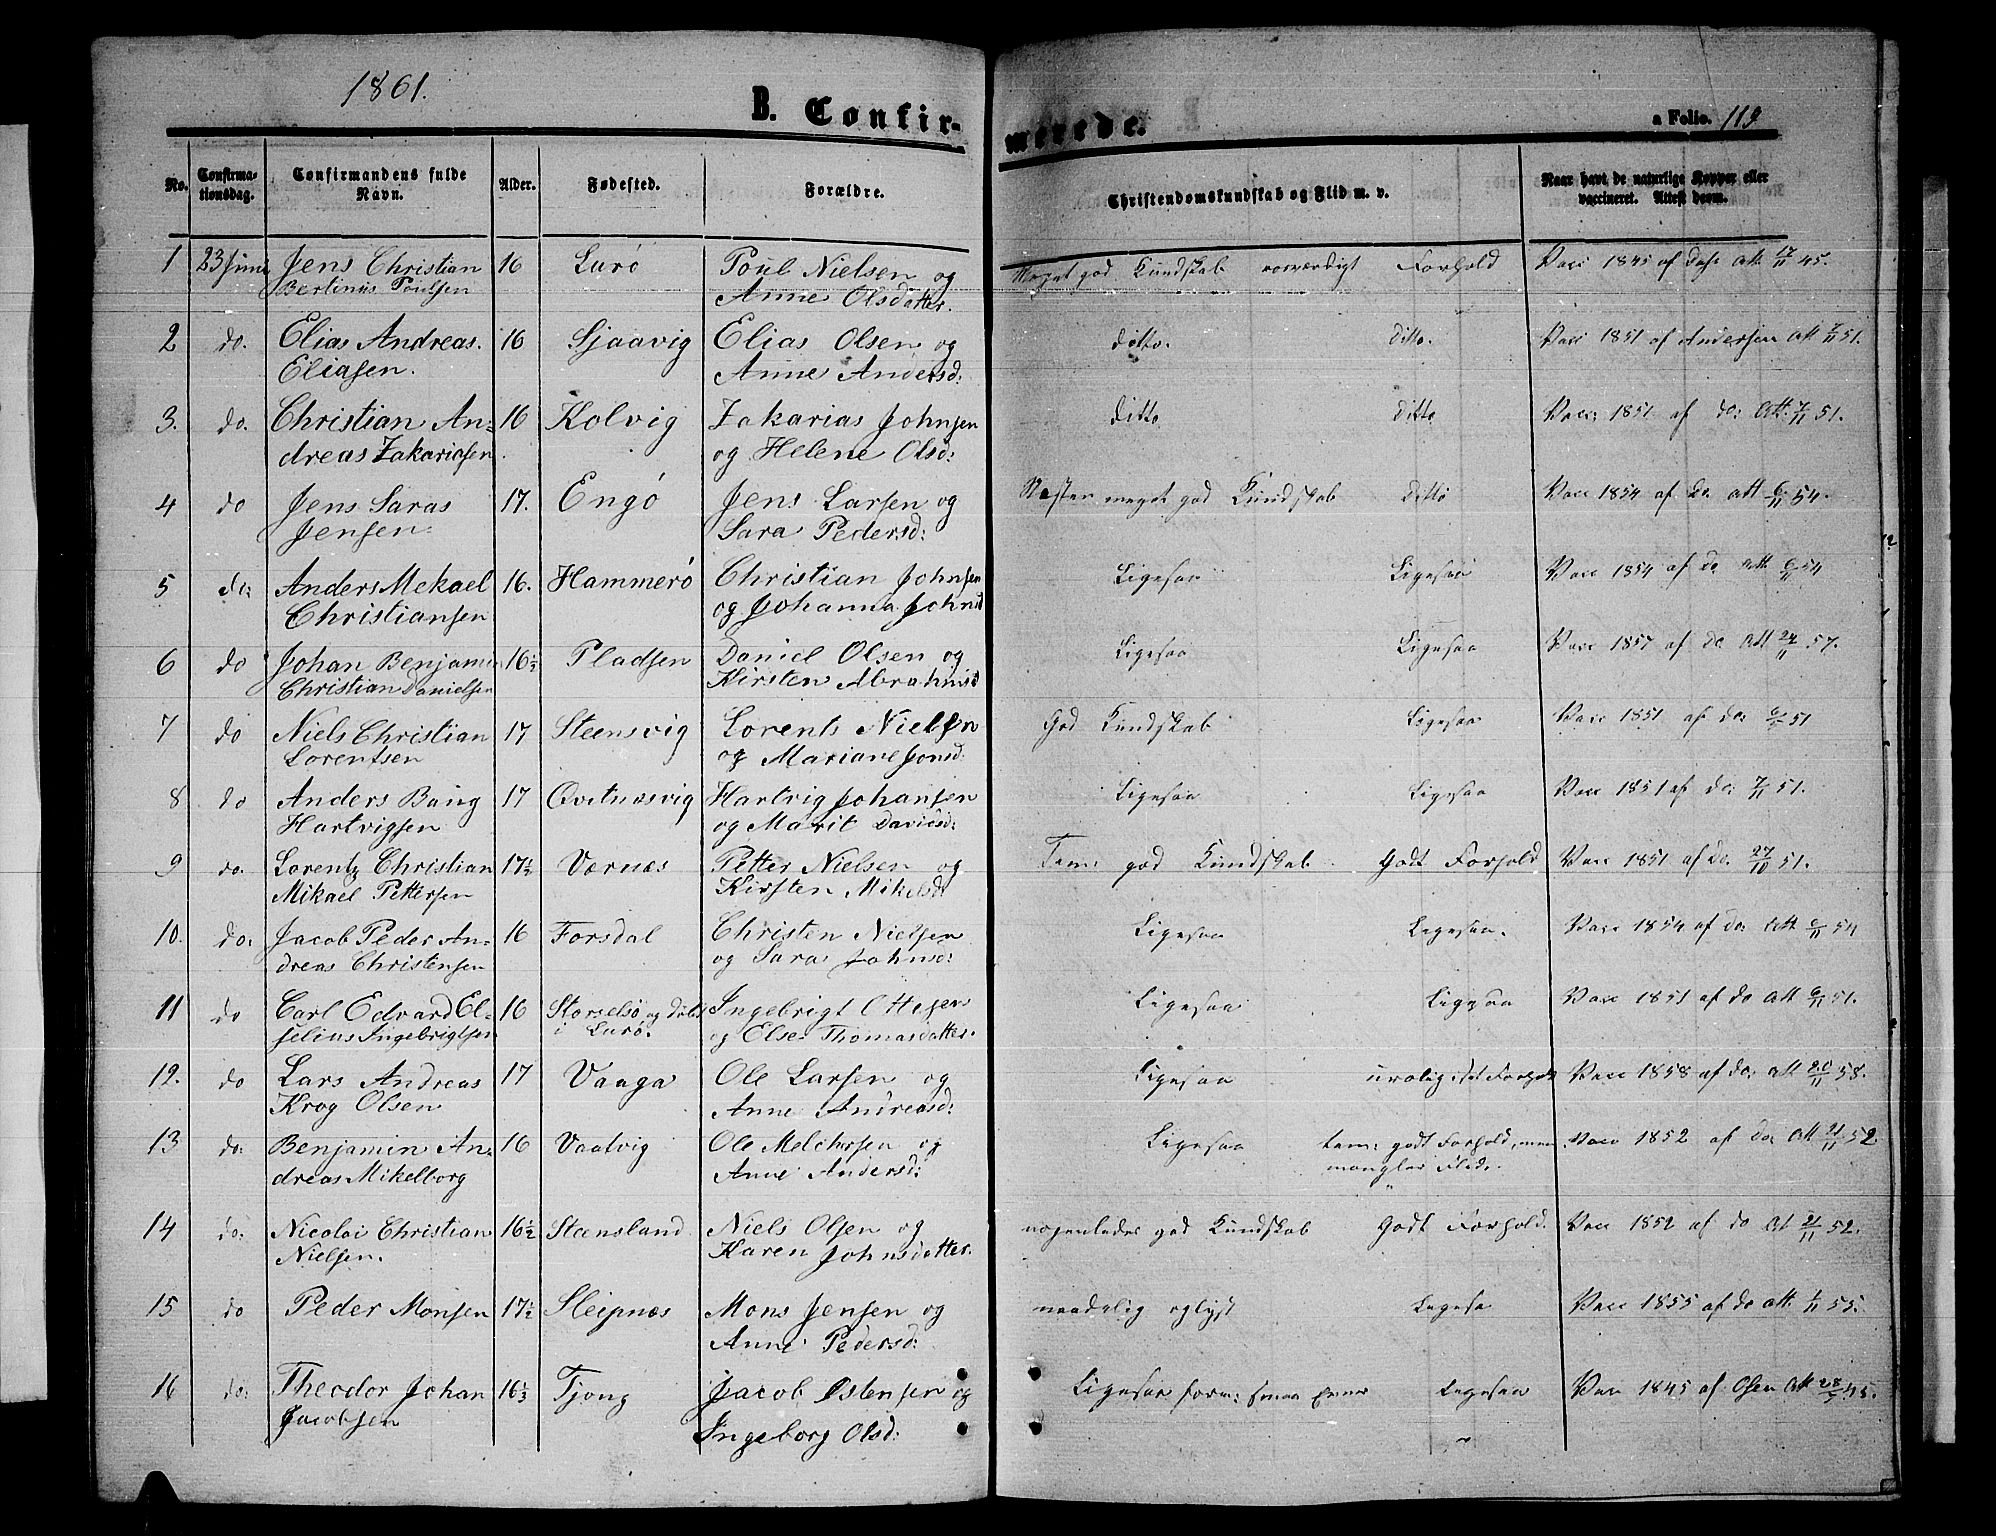 1861.
B. Confir-
merede.
a Folio. 119
No.
Confirma-
tionsdag.
Confirmandens fulde
Navn.
Alder.
Fødested.
Forældre.
Christendomskundskab og Flid m. v.
Naar havt de naturlige Kopper eller
vaccineret. Attest derom.
1 23 Juni Jens Christian 16 Lurö Poul Nielsen og Meget god Kundskab rosværdigt Forhold Vacc 1845 af Att 17/11 45.
Bertinus Poulsen Anne Olsdatter.
2 do. Elias Andreas. 16 Sjaavig Elias Olsen og ditto. ditto. Vacc 1851 af Andersen Att 7/11 51.
Eliasen. Anne Andersd:
3. do. Christian An= 16 Kolvig Zakarias Johnsen ditto ditto Vacc: 1851 af do: Att. 7/11 51.
dreas Zakariasen. og Helene Olsd:
4 do Jens Saras 17. Engö Jens Larsen og Næsten meget god Kundskab ditto Vacc 1854 af do. att 6/11 54.
Jensen. Sara Pedersd:
5 do: Anders Mekael 16. Hammerö Christian Johnsen Ligesaa Ligesaa Vacc 1854 af do Att 6/11 54
Christiansen og Johanna Johnsd
6 do Johan Benjamin 16½ Pladsen Daniel Olsen og Ligesaa Ligesaa Vacc 1857 af do Att 24/11 57.
Christian Danielsen Kirsten Abrahmsd
7 do Niels Christian 17 Steensvig Lorents Nielsen God Kundskab Ligesaa Vacc 1851 af do: 51
Lorentsen og Mariane Jonsd:
8 do Anders Bang 17 Qvitnesvig Hartvig Johansen Ligesaa Ligesaa Vacc 1851 af do: 7/11 51.
Hartvigsen og Marit Davidsd:
9 do. Lorentz Christian 17½ Værnæs Petter Nielsen og Tem: god Kundskab Godt Forhold Vacc 1851 af do. 27/10 51.
Mikael Pettersen Kirsten Mikelsd:
10. do: Jacob Peder An= 16 Forsdal Christen Nielsen Ligesaa Ligesaa. Vacc 1854 af do: Att 6/11 54
dreas Christensen og Saras Johnsd:
11 do Carl Edvard El= 16 Storselsö og döbt Ingebrigt Ottesen Ligesaa Ligesaa Vacc 1851 af do Att 6/11 51.
selius Ingebrigtsen i Lurö. og Else Thomasdatter.
12. do Lars Andreas 17 Vaaga Ole Larsen og Ligesaa uroligt Forhold Vacc 1858 af do: att 20/11 58.
Krog Olsen Anne Andreasd:
13 do: Benjamin An= 16 Vaatvig Ole Melchersen og Ligesaa tem: godt Forhold, men Vacc 1852 af do: Att 21/11 52
dreas Mikelborg Anne Andersd: mangler Flid.
14 do: Nicolai Christian 16½ Steensland Niels Olsen og nogenledes god Kundskab Godt Forhold. Vacc 1852 af do At 21/11 52.
Nielsen. Karen Johnsdatter.
15 do Peder Monsen 17½ Sleipnæs Mons Jensen og maadelig oplyst Ligesaa Vacc 1855 af do att. 55.
Anne Pedersd:
16 do: Theodor Johan 16½ Tjong Jacob Østensen og Ligesaa Ligesaa Vacc 1845 af Olsen Att 45.
Jacobsen Ingeborg Olsd: